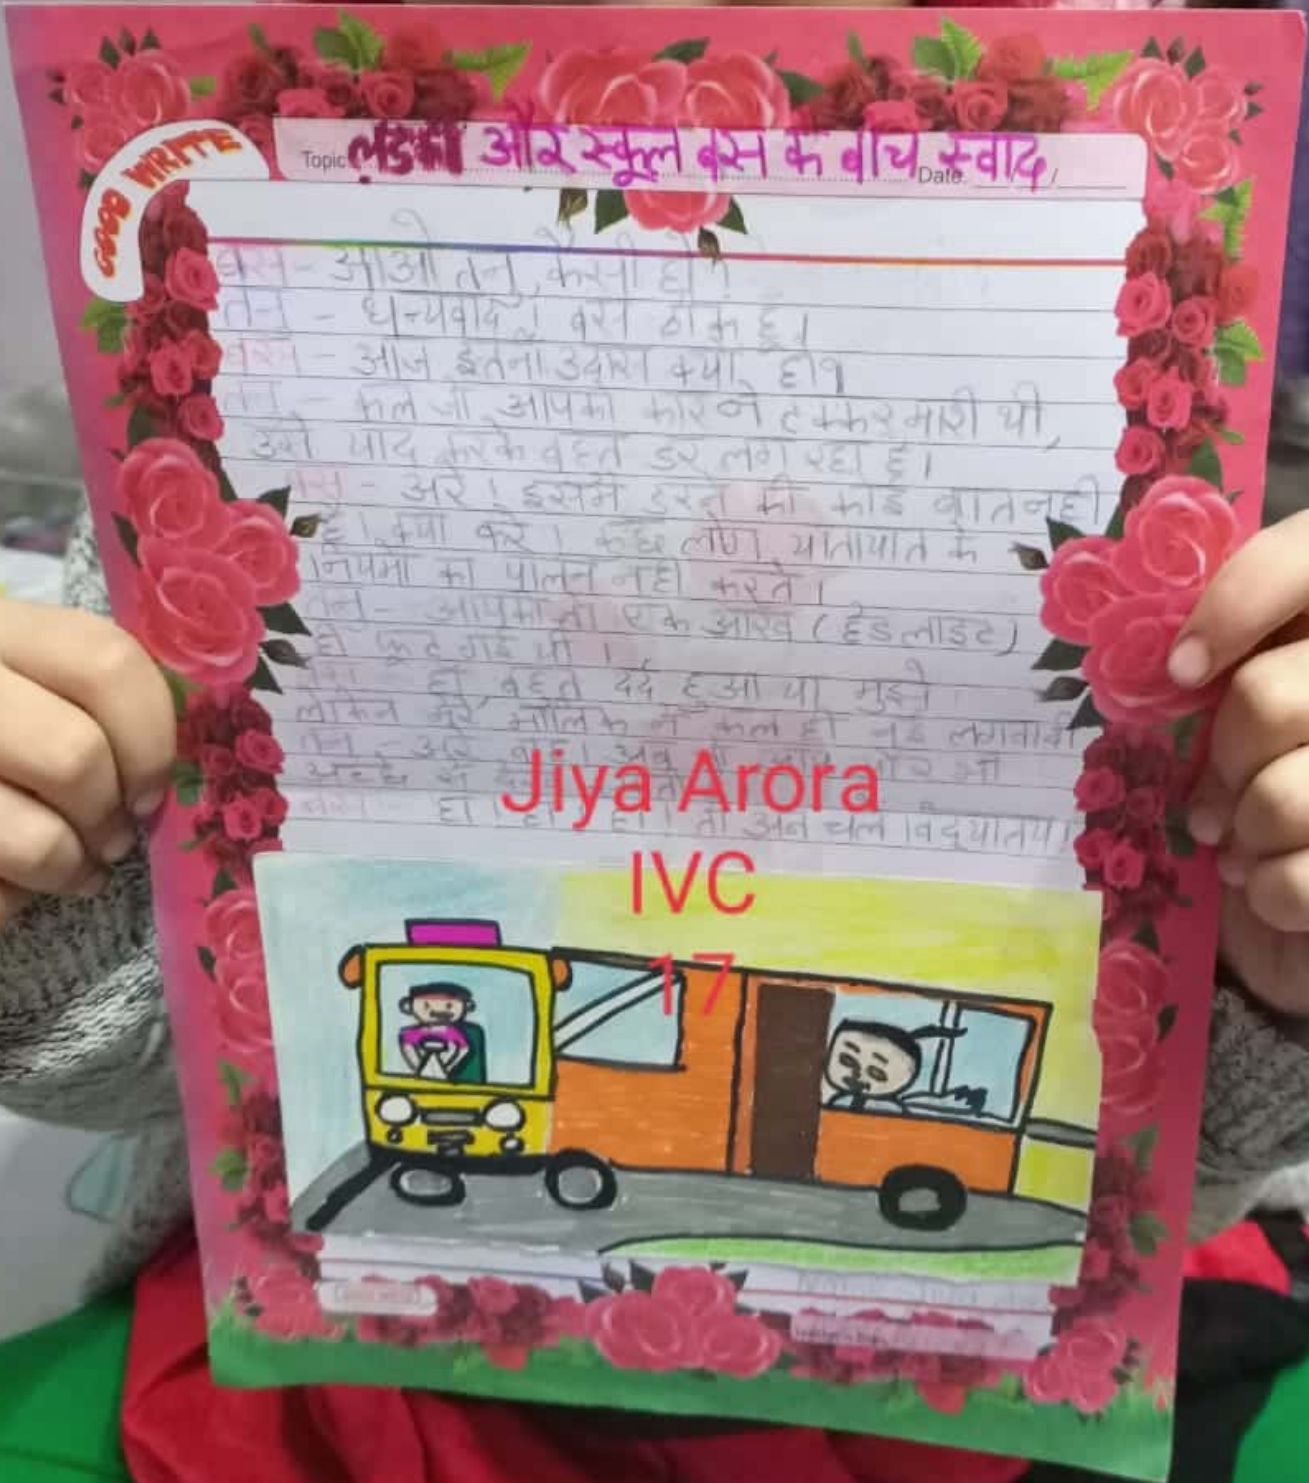 GOOD WRITE
Topic लडकी और स्कूल बस के बीच स्वाद Date
बस - आओ तनु, कैसी हो ?
तनु - धन्यवाद ! बस ठीक हूँ।
बस - आज इतनी उदास क्यों हो?
तनु - कल जो आपको कार ने टक्कर मारी थी,
उसे याद करके बहुत डर लग रहा है।
बस - अरे ! इसमें डरने की कोई बात नहीं
है। क्या करे । कुछ लोग यातायात के
नियमों का पालन नहीं करते ।
तनु - आपकी तो एक आँख (हेडलाइट)
ही फूट गई थी ।
हाँ, बहुत दर्द हुआ था मुझे
लेकिन मेरे मालिक ने कल ही नई लगवायी
तनु - अरे वाह ! अब तो आप और भी
हा ! हा ! हा ! तो अब चले विद्यालय।
Jiya Arora
IVC
17